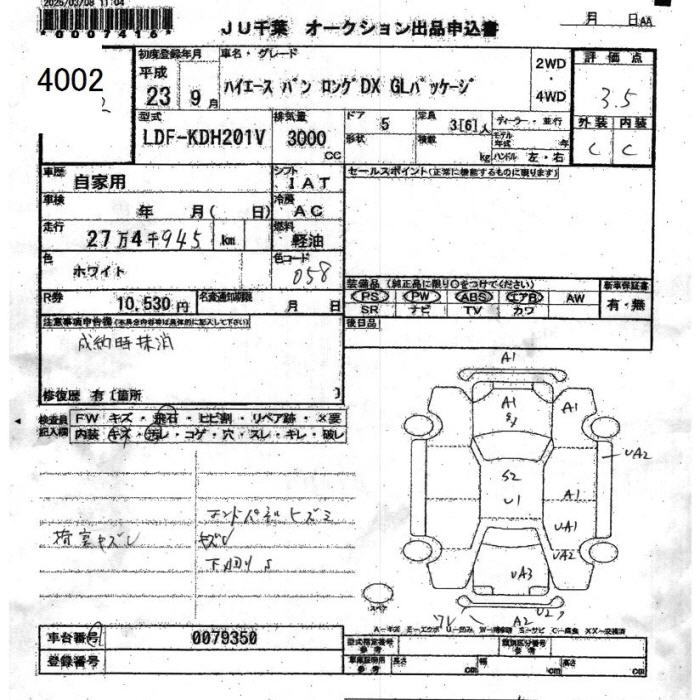 2025/03/08 11:04
*00007415*
JU千葉 オークション出品申込書
月 日AA
4002
初度登録年月
車名・グレード
平成
23 9月
ハイエース バン ロングDX GLパッケージ
2WD
・
4WD
評価点
3.5
型式
LDF-KDH201V
排気量
3000
CC
ドア
5
定員
3[6]人
ディーラー・並行
形状
積数
kg
モデル年式 年
ハンドル 左・右
外装 内装
C C
車歴
自家用
シフト
IAT
セールスポイント(正常に機能するものに限ります)
車検
年 月( 日)
冷房
AC
走行
27万4千945km
燃料
軽油
色
ホワイト
色コード
058
装備品(純正品に限り○をつけてください)
新車保証書
PS PW ABS エアB AW
SR ナビ TV カワ
有・無
R券
10,530円
名変通知期限
月 日
後日品
注意事項申告欄(不具合内容等は具体的に記入して下さい)
成約時抹消
修復歴 有[箇所 ]
検査員記入欄
FW キズ・飛石・ヒビ割・リペア跡・×要
内装 キズ・汚レ・コゲ・穴・スレ・キレ・破レ
荷室キズレ
エンドパネルヒズミ
キズレ
下回りS
A1
A1
A1
S2
U1
A1
UA2
UA1
UA2
UA3
U2
A2
スペア
A-キズ E-エクボ U-凹み W-補修跡 S-サビ C-腐食 XX-交換済
車台番号
0079350
登録番号
型式指定番号
参考
類別区分番号
参考
車庫証明用
参考
長さ cm
幅 cm
高さ cm